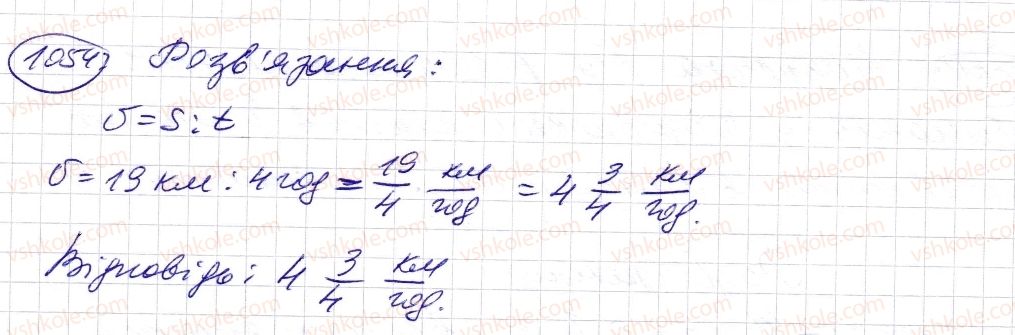 1054) Розв'язання:
v = S : t
v = 19 км : 4 год = 19/4 км/год = 4 3/4 км/год.
Відповідь: 4 3/4 км/год.